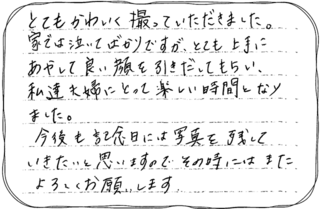 とてもかわいく撮っていただきました。
家では泣いてばかりですが、とても上手に
あやして良い顔を引きだしてもらい、
私達夫婦にとって楽しい時間となり
ました。
今後も記念日には写真を残して
いきたいと思いますのでその時にはまた
よろしくお願いします。